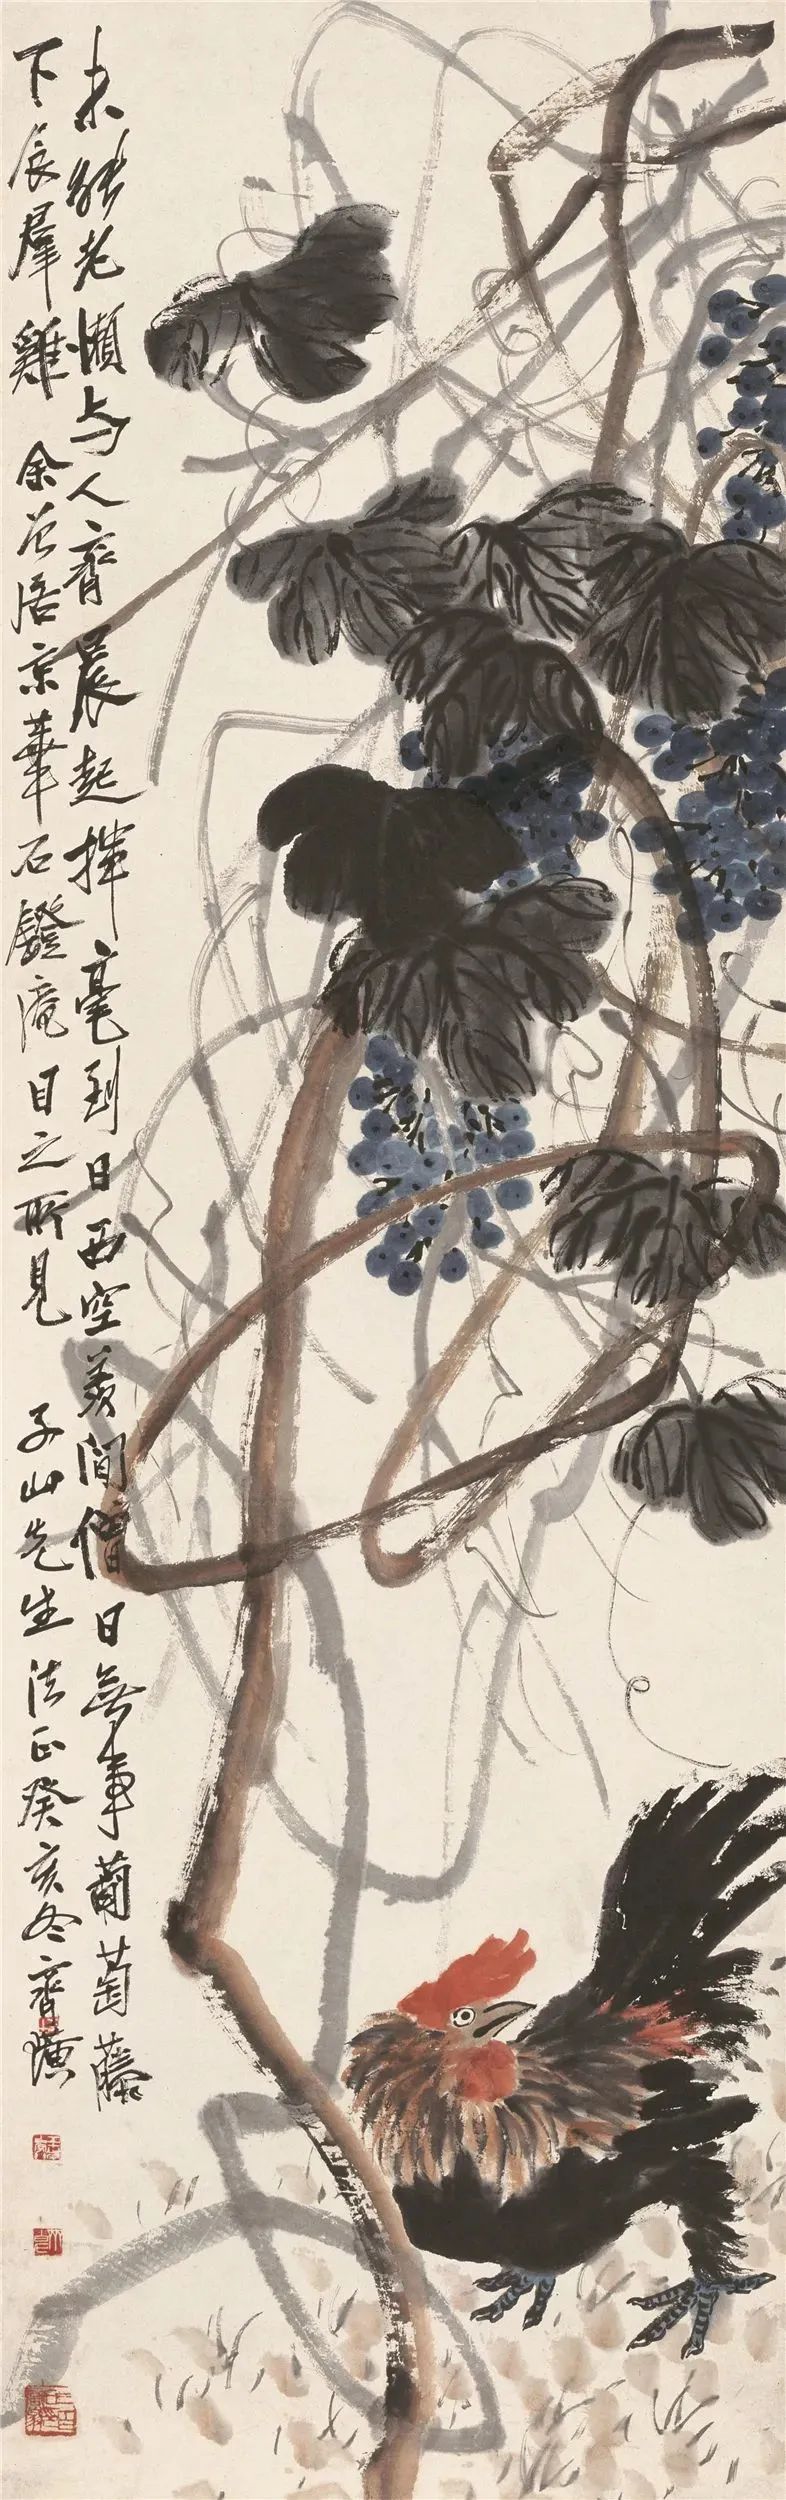 未能老懶与人齊晨起揮毫到日西空羨閒僧日無事葡萄藤
下羣雞 余曾居京華石鐙庵目之所見 子山先生法正癸亥冬齊璜